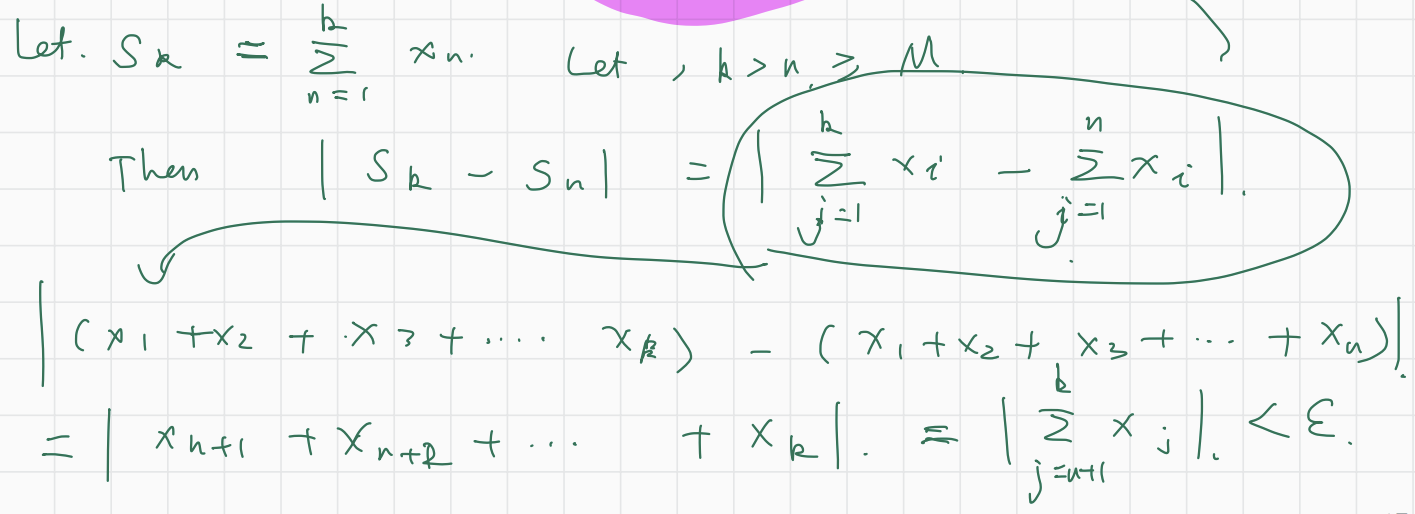 Let. S_k = \sum_{n=1}^{k} x_n. Let , k > n ≥ M
Then | S_k - S_n | = | \sum_{j=1}^{k} x_i - \sum_{j=1}^{n} x_i |.
| (x_1 + x_2 + x_3 + .... x_k) - (x_1 + x_2 + x_3 + ... + x_n) |.
= | x_{n+1} + x_{n+2} + ... + x_k |. = | \sum_{j=n+1}^{k} x_j |. < ε.